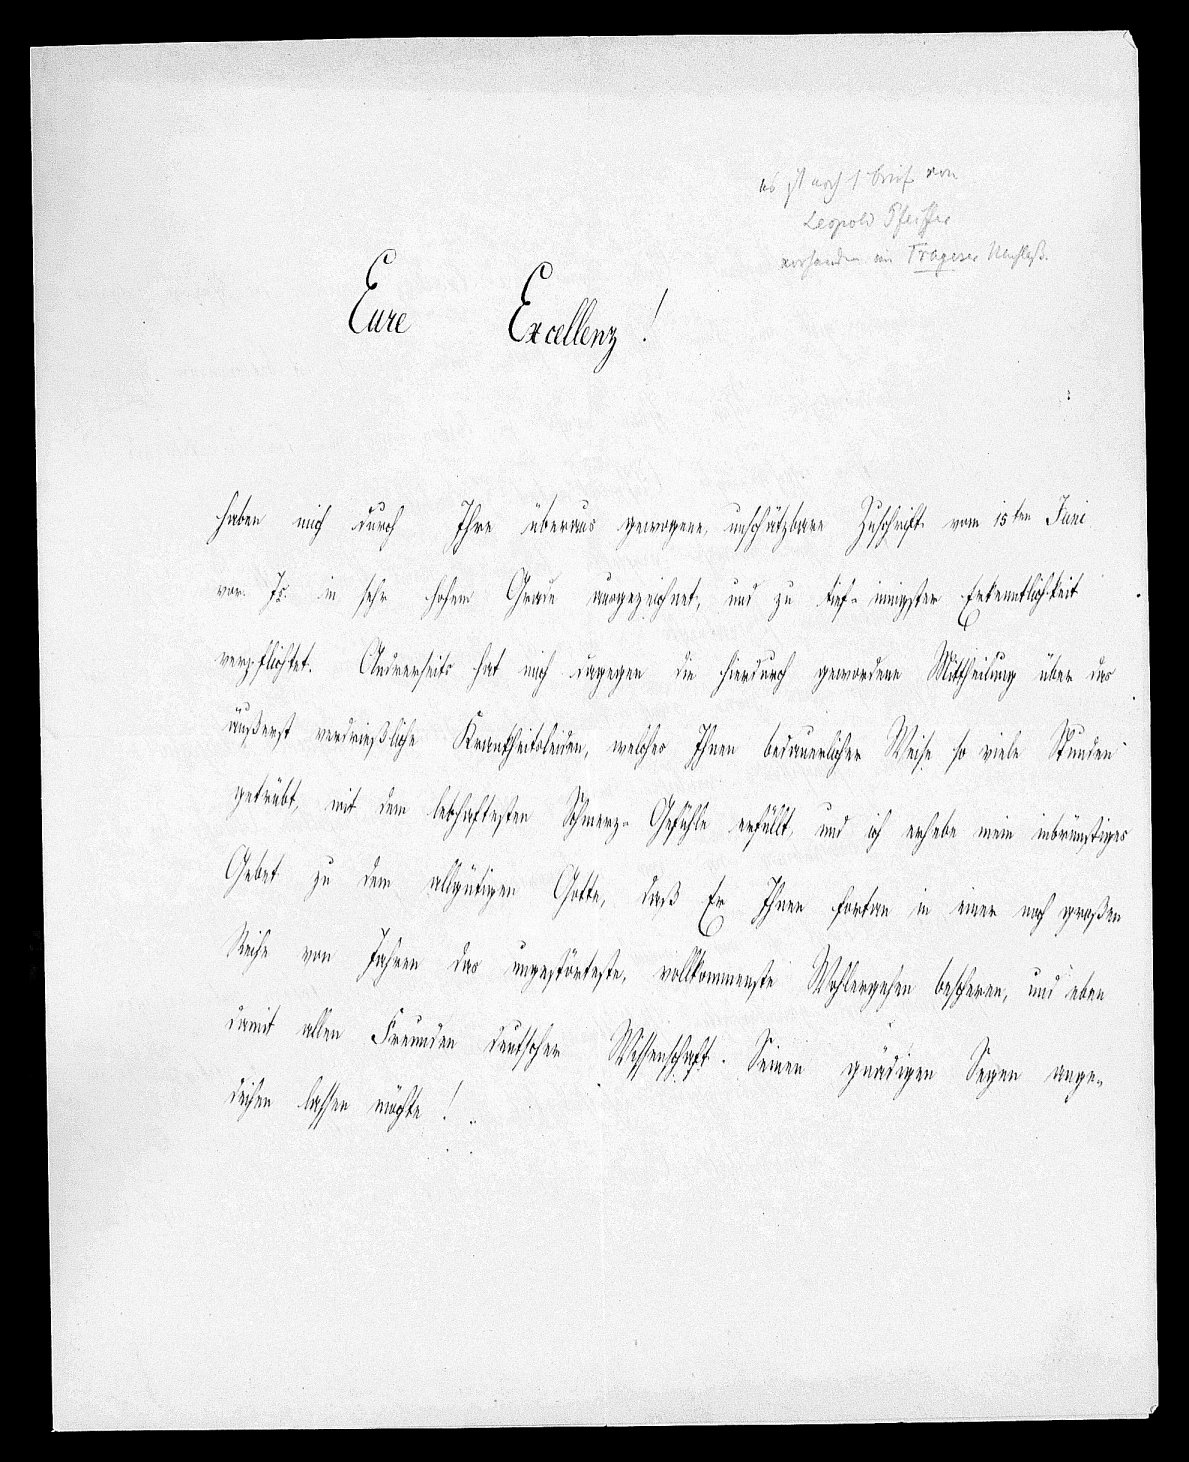 es ist noch 1 Brief von
Leopold Pfeiffer
vorhanden im Trageser Nachlaß.
Eure Excellenz!
haben mich durch Ihre überaus gewogene, unschätzbare Zuschrift vom 15ten Juni
vor. Js. in sehr hohem Grade ausgezeichnet, und zu tief-innigster Erkenntlichkeit
verpflichtet. Andrerseits hat mich dagegen die hierdurch gewordene Mittheilung über das
äußerst verdrießliche Krankheitsleiden, welches Ihnen bedauerlicher Weise so viele Stunden
getrübt, mit dem lebhaftesten Schmerz-Gefühle erfüllt, und ich erhebe mein inbrünstiges
Gebet zu dem allgütigen Gotte, daß Er Ihnen fortan in einer noch großen
Reihe von Jahren das ungestörteste, vollkommenste Wohlergehen bescheren, und eben
damit allen Freunden deutscher Wissenschaft Seinen gnädigen Segen ange-
deihen lassen möchte!